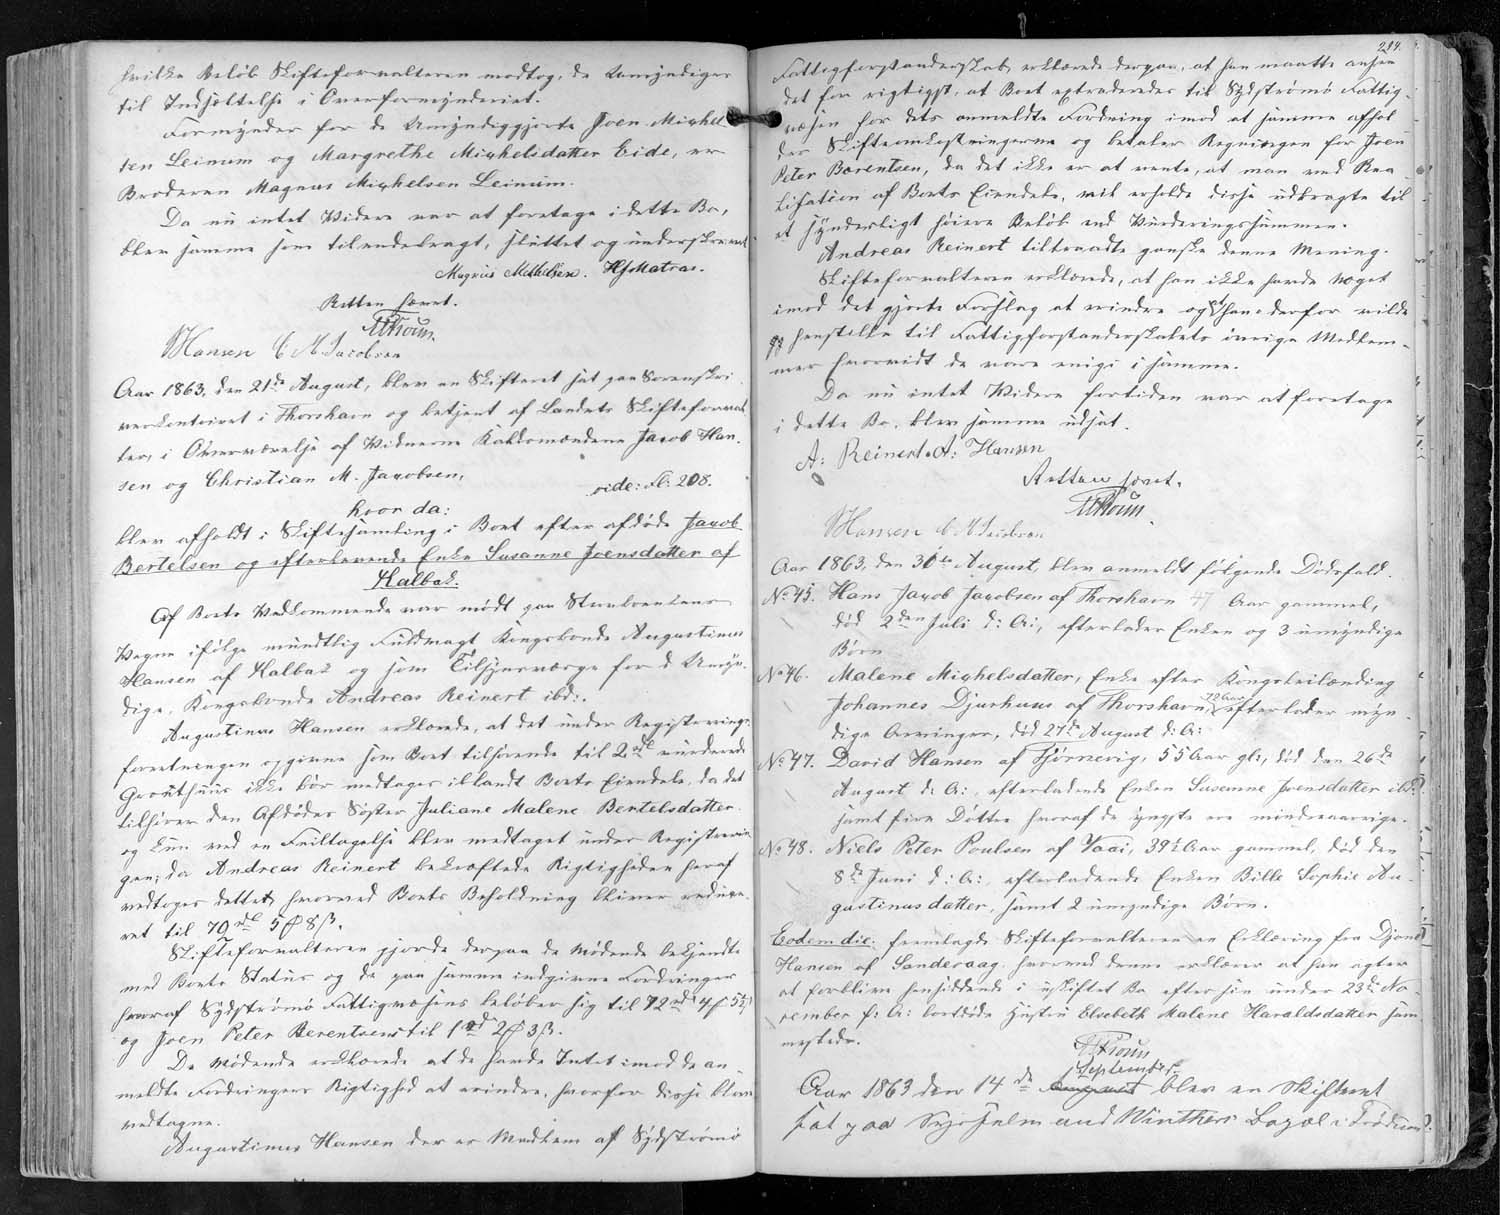 hvilke Beløb Skifteforvalteren modtog, de Umyndiges
til Indsættelse i Overformynderiet.
Formynder for de Umyndiggjorte Joen Michel
sen Leinum og Margrethe Michelsdatter Eide, er
Broderen Magnus Michelsen Leinum.
Da nu intet Videre var at foretage i dette Bo,
blev samme som tilendebragt, sluttet og underskrevet
Magnus Mikkelsen. HJMatras.
Retten hævet.
HTholm.
JHansen C M. Jacobsen
Aar 1863, den 21de August, blev en Skifteret sat paa Sorenskri
verkontoiret i Thorshavn og betjent af Landets Skifteforval
ter, i Overværelse af Vidnerne Kaldsmændene Jacob Han
sen og Christian M. Jacobsen,
vide: fl: 208.
hvor da:
blev afholdt: Skiftesamling i Boet efter afdøde Jacob
Bertelsen og efterlevende Enke Susanne Joensdatter af
Halbak.
Af Boets Vedkommende var mødt paa Sterboenkens
Vegne ifølge mundtlig Fuldmagt Kongsbonde Augustinus
Hansen af Halbak og som Tilsynsværge for d. Umyn-
dige, Kongsbonde Andreas Reinert ibd:.
Augustinus Hansen erklærede, at det under Registerings-
forretningen opgivne som Boet tilhørende til 2rd vurderede
Grouthuus ikke bør medtages iblandt Boets Eiendele, da det
tilhører den Afdødes Søster Juliane Malene Bertelsdatter
og kun ved en Feiltagelse blev medtaget under Registrerin
gen; da Andreas Reinert bekræftede Rigtigheden heraf
vedtoges dette, hvorved Boets Beholdning bliver reduce-
ret til 79rd 5 8ß.
Skifteforvalteren gjorde derpaa de Mødende bekjendte
med Boets Status og de paa samme indgivne Fordringer
hvoraf Sydstrømø Fattigvæsens beløber sig til 72rd 4 5ß
og Joen Peter Berentsens til 1rd 2 3ß.
De Mødende erklærede at de havde Intet imod de an-
meldte Fordringers Rigtighed at erindre, hvorfor disse blev
vedtagne.
Augustinus Hansen der er Medlem af Sydstrømø
284.
Fattigforstanderskab, erklærede derpaa, at han maatte ansee
det for rigtigst, at Boet extraderedes til Sydstrømø Fattig-
væsen for dets anmeldte Fordring imod at samme afhol
der Skifteomkostningerne og betaler Regningen for Joen
Peter Berentsen, da det ikke er at vente, at man ved Rea-
lisation af Boets Eiendele, vil erholde disse udbragte til
et synderligt høiere Beløb end Vurderingssummen.
Andreas Reinert tiltraadte ganske denne Mening.
Skifteforvalteren erklærede, at han ikke havde Noget
imod det gjorte Forslag at erindre og at han derfor vilde
henstille til Fattigforstanderskabets øvrige Medlem-
mer hvorvidt de vare enige i samme.
Da nu intet Videre fortiden var at foretage
i dette Bo, blev samme udsat.
A: Reinert. A: Hansen
Retten hævet.
HTholm.
JHansen C M Jacobsen
Aar 1863, den 30te August, blev anmeldt følgende Dødsfald.
No 45. Hans Jacob Jacobsen af Thorshavn 47 Aar gammel,
død 2den Juli d: A:, efterlader Enken og 3 umyndige
Børn
No 46. Malene Mighelsdatter, Enke efter Kongsleilænding
Johannes Djurhuus af Thorshavn, 72 Aar efterlader myn-
dige Arvinger, død 27de August d: A:
No 47. David Hansen af Hjørnevig, 55 Aar gl:, død den 26de
August d: A:, efterladende Enken Susanne Joensdatter ibd:
samt fire Døttre hvoraf de yngste ere mindreaarige.
No 48. Niels Peter Poulsen af Vaai, 39½ Aar gammel, død den
8de Juni d: A:, efterladende Enken Bille Sophie Au-
gustinusdatter, samt 2 umyndige Børn.
Eodem die: fremlagde Skifteforvalteren en Erklæring fra Djone
Hansen af Sandevaag, hvorved denne erklærer at han agter
at forblive hensiddende i uskiftet Bo efter sin under 23de No-
vember f: A: bortdøde Hustru Elsebeth Malene Haraldsdatter sam
mesteds.
HTholm
September
Aar 1863 den 14de August blev en Skifteret
sat paa Sysselmand Winthers Bopæl i